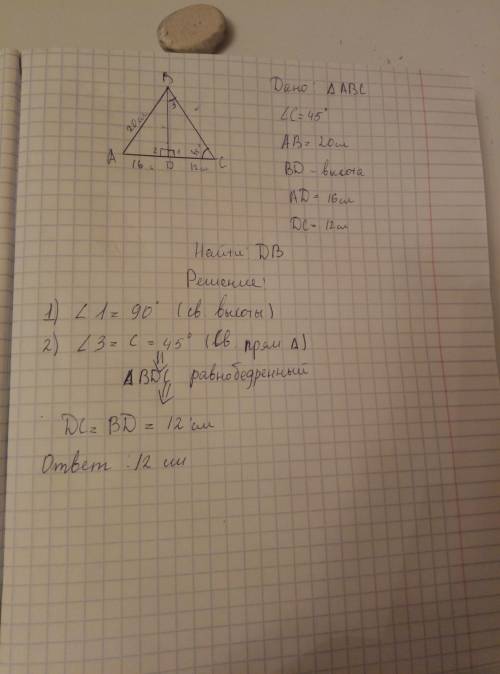 B
3
20см
2 1 45°
A D C
16см 12см
Дано: ΔABC
∠C=45°
AB=20см
BD – высота
AD=16см
DC=12см
Найти: DB
Решение:
1) ∠1=90° (св высоты)
2) ∠3=C=45° (св. прям Δ)
⇓
ΔBDC равнобедренный
⇓
DC=BD=12см
Ответ: 12 см